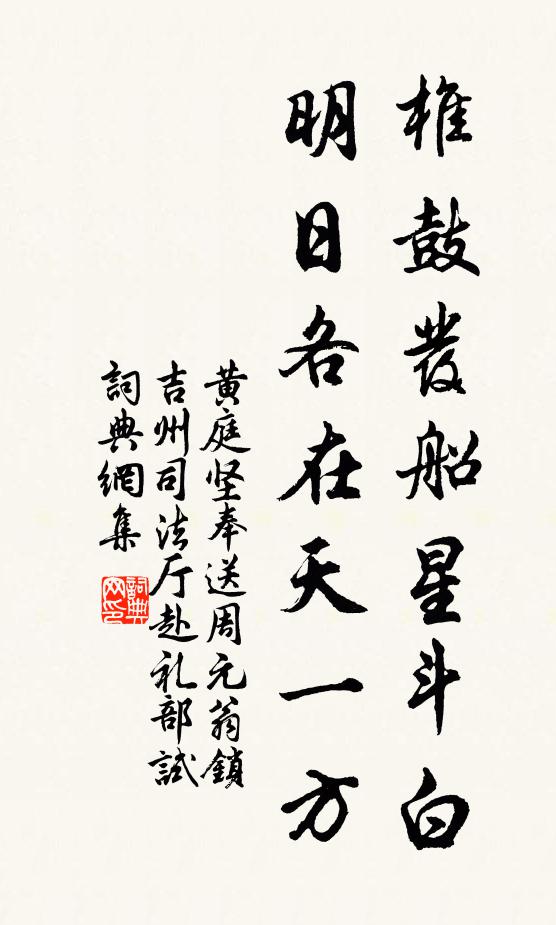 椎鼓發船星斗白
明日各在天一方
黄庭坚奉送周元翁鎖
吉州司法厅赴礼部試
詞典網集
詞典网印